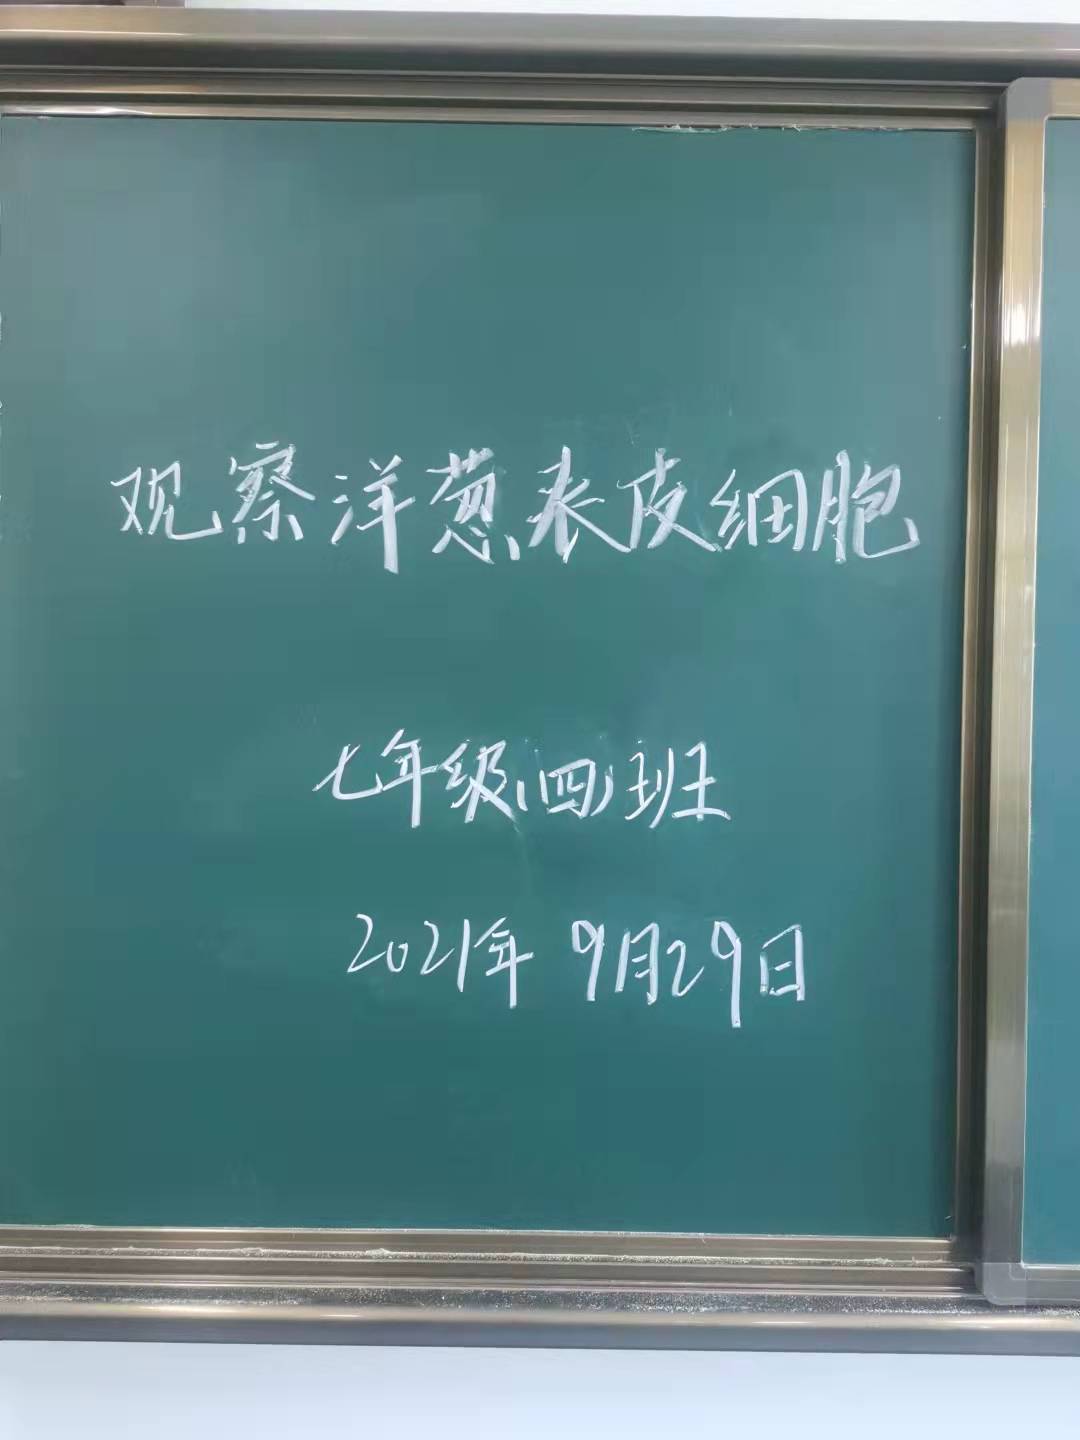 观察洋葱表皮细胞
七年级(四)班
2021年 9月29日